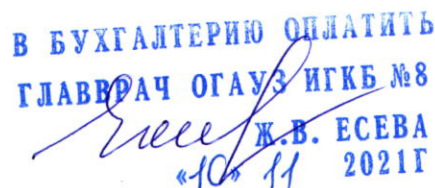 В БУХГАЛТЕРИЮ ОПЛАТИТЬ
ГЛАВВРАЧ ОГАУЗ ИГКБ №8
Ж.В. ЕСЕВА
«10» 11 2021Г